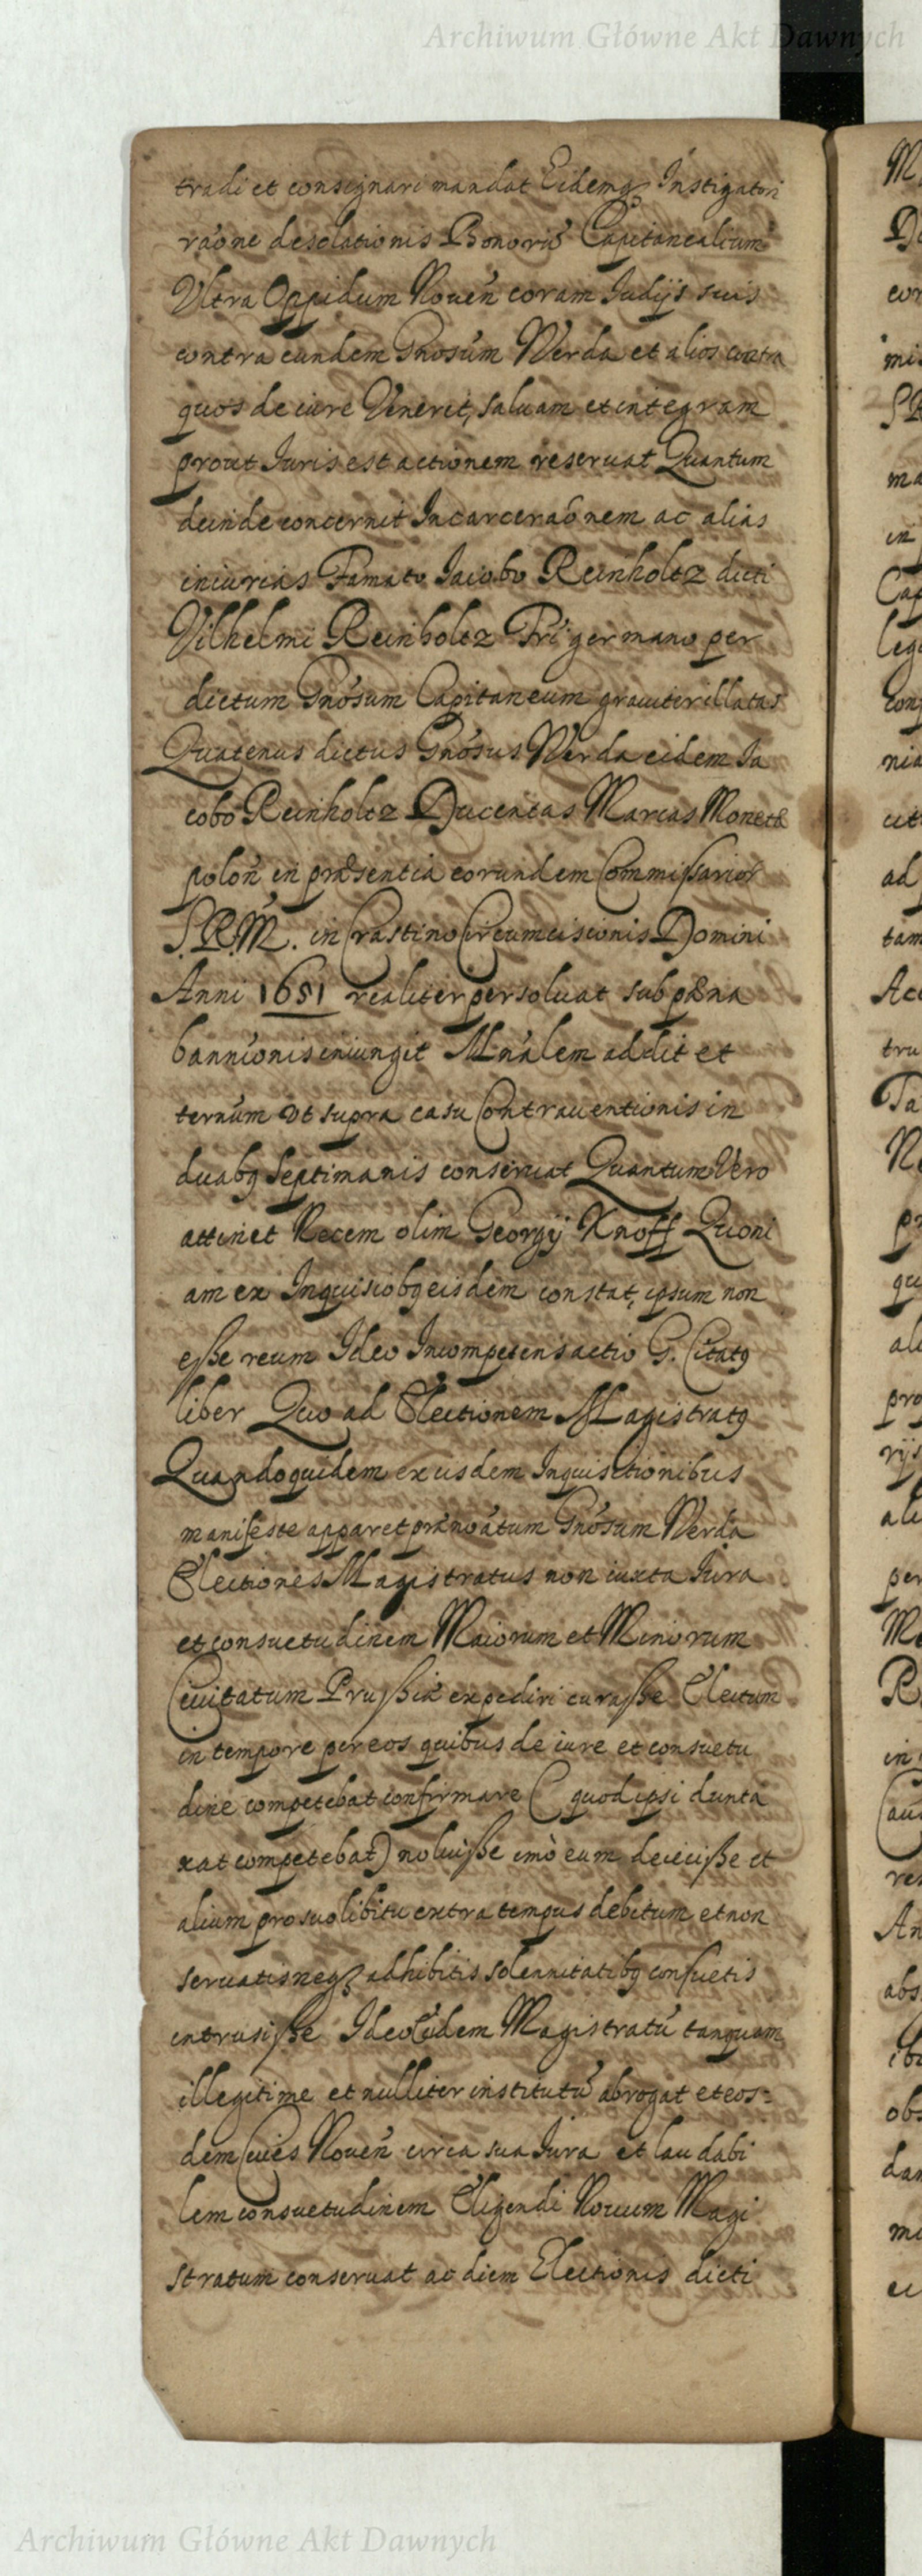 Archiwum Główne Akt Dawnych
tradi et consignari mandat Eidemq3 Instigatori
raóne desolationis Bonorũ Capitanealium
Ultra Oppidum Noueñ coram Iudijs suis
contra eundem Gnosúm Werda et alios contra
quos de iure Venerit, saluam et integram
prout Iuris est actionem reseruat Quantum
deinde concernit Incarceraónem ac alias
iniurias Famato Iacobo Reinholtz dicti
Vilhelmi Reinholtz Fri germano per
dictum Gnósum Capitaneum grauiter illatas
Quatenus dictus Gnósus Werda eidem Ia
cobo Reinholtz Ducentas Marcas Monetæ
poloñ in præsentia eorundem Commissarior
S.R.M. in Crastino Circumcisionis Domini
Anni 1651 realiter persoluat sub pæna
bannionis iniungit Mnálem addit et
ternúm vt supra casu Contrauentionis in
duabq septimanis conseruat Quantum Vero
attinet Necem olim Georgij Knoff Quoni
am ex Inquisiobq eisdem constat, ipsum non
esse reum Ideo Incompetens actio G. Citatq
liber Quo ad Electionem Magistratq
Quandoquidem ex iisdem Inquisitionibus
manifeste apparet prænoátum Gnósum Werda
Electiones Magistratus non iuxta Iura
et consuetudinem Maiorum et Minorum
Ciuitatum Prussiæ expediri curasse Electum
in tempore per eos quibus de iure et consuetu
dine competebat confirmare (quod ipsi dunta
xat competebat) noluisse imò eum deiecisse et
alium pro suo libitu extra tempus debitum et non
seruatis neq3 adhibitis solennitatibq consuetis
intrusisse Ideo Eudem Magistratũ tanquam
illegitime et nulliter institutũ abrogat et eos=
dem Ciues Noueñ circa sua Iura et laudabi
lem consuetudinem Eligendi Nouum Magi
stratum conseruat ac diem Electionis dicti
Archiwum Główne Akt Dawnych